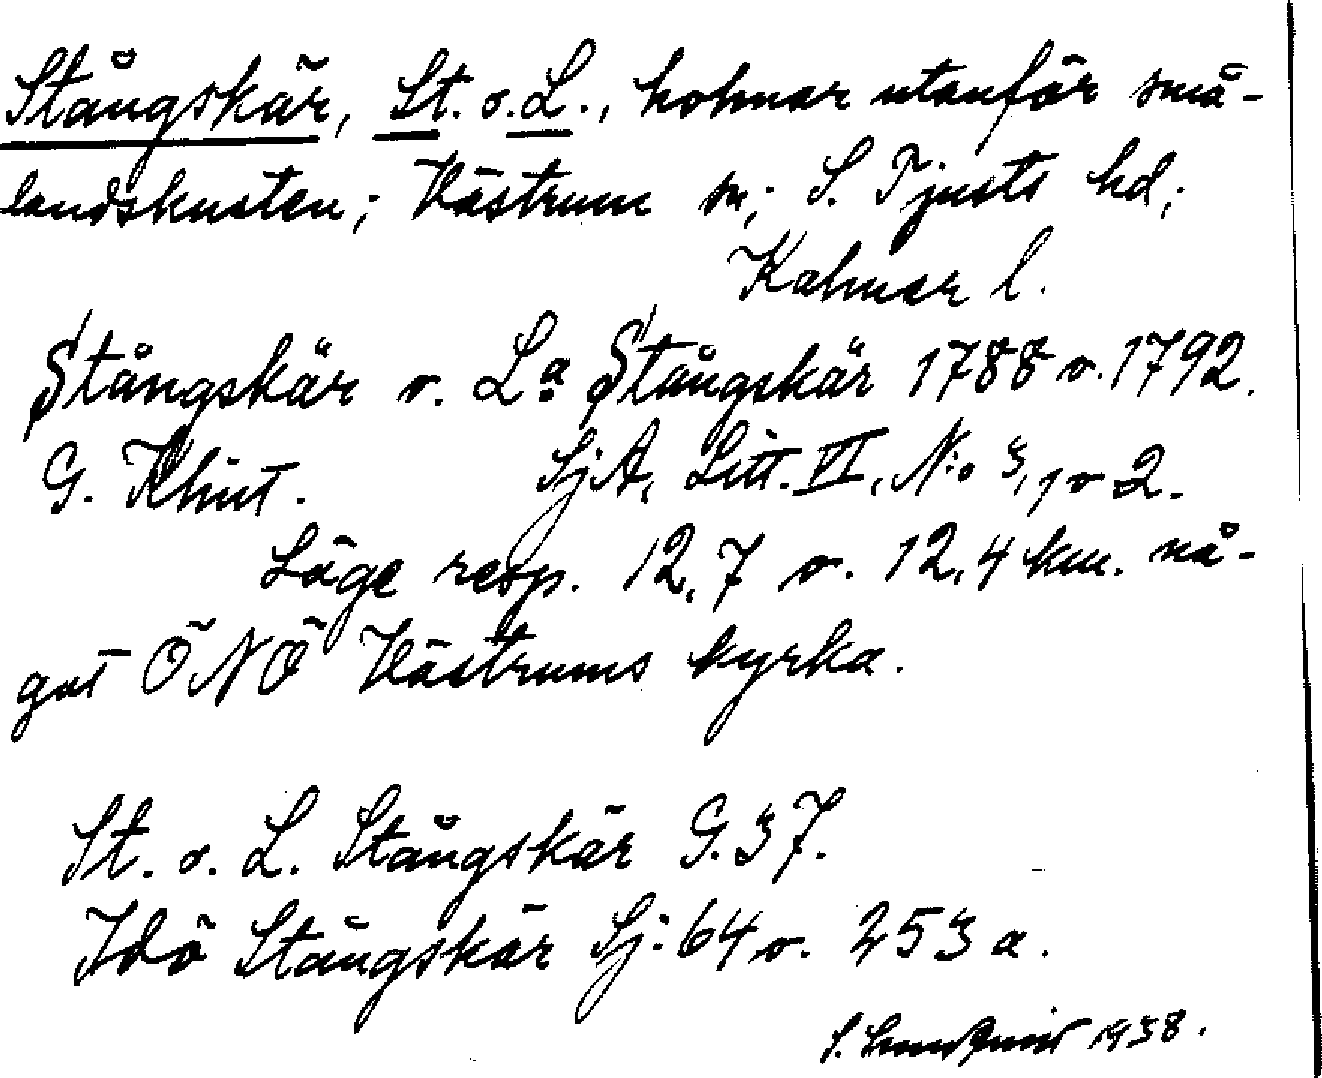 Stångskär, St. o. L., holmar utanför små-
landskusten; Västrum sn; S. Tjusts hd;
Kalmar l.
Stångskär o. La Stångskär 1788 o. 1792.
G. Klint. SjA, Litt. VI, N:o 3, 1 o 2.
Läge resp. 12,7 o. 12,4 km. nå-
got ÖNÖ Västrums kyrka.
St. o. L. Stångskär G. 37.
Idö Stångskär Sj: 64 o. 253 a.
S. 1938.